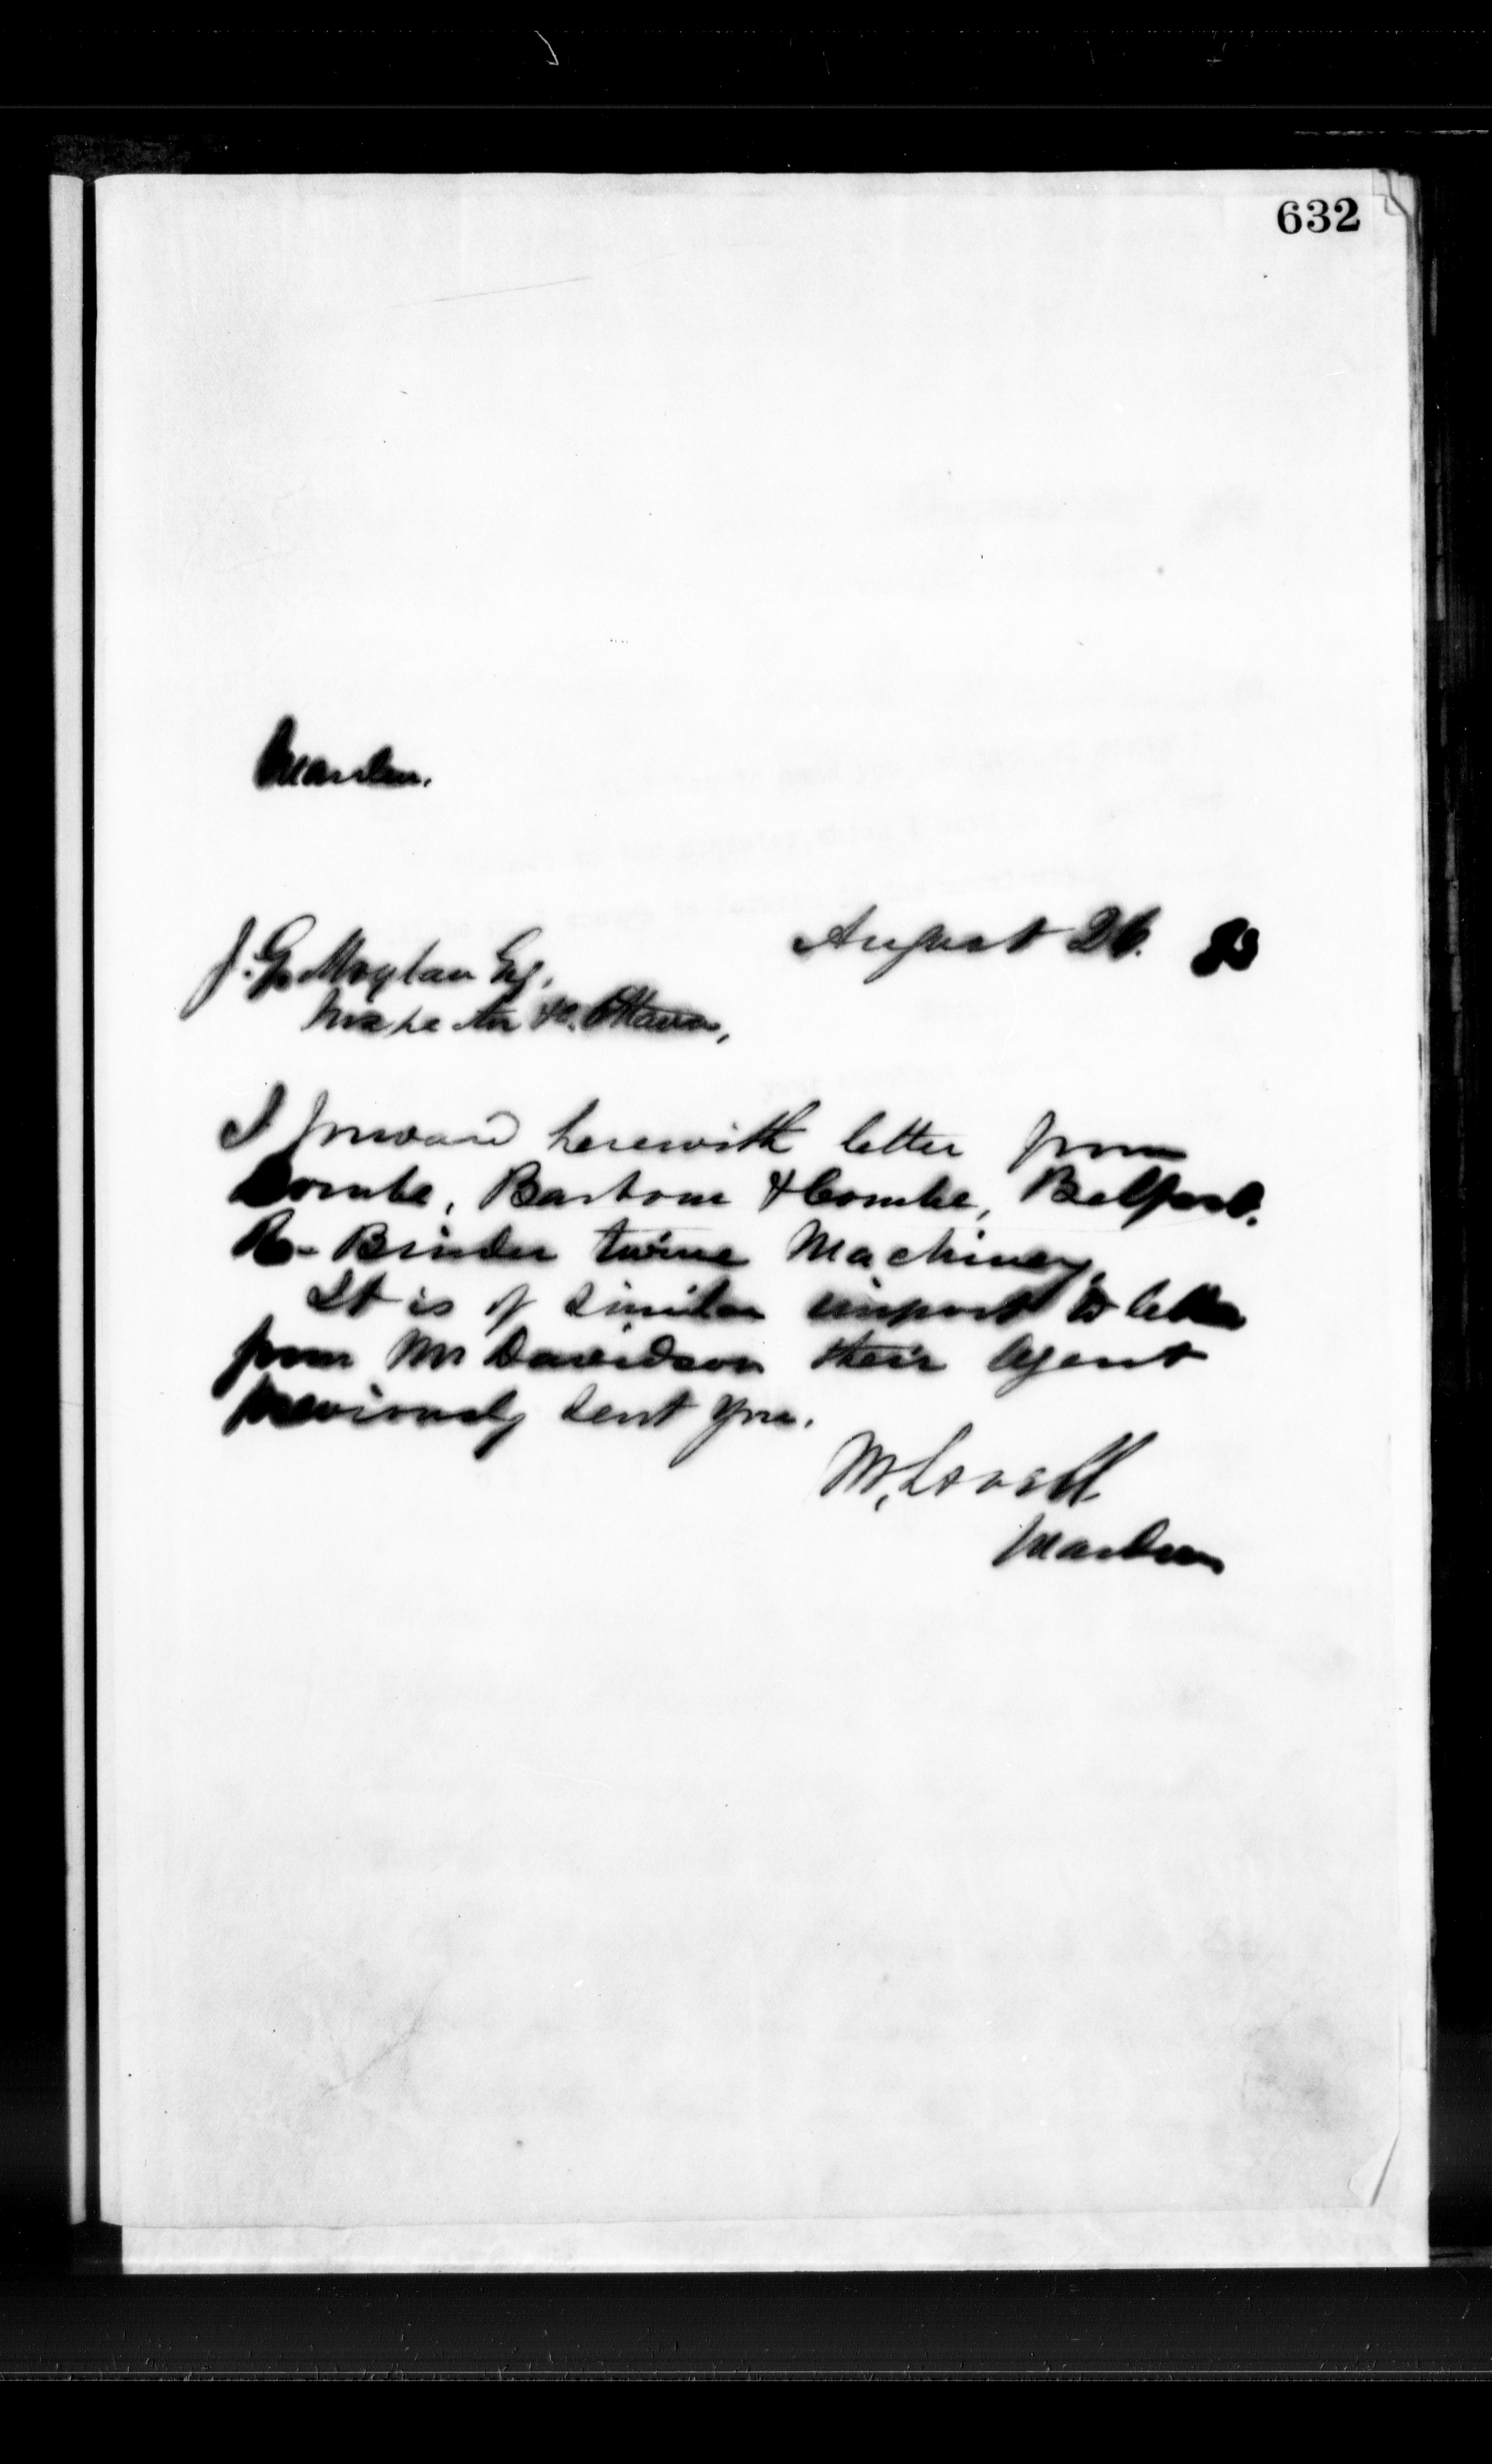 632
Warden.
August 26. 93
J. G. Moylan Esq,
Inspector &c. Ottawa,
I forward herewith letter from
Combe, Barbour & Combe, Belfast.
Re- Binder twine Machinery.
It is of similar import to letter
from Mr Davidson their Agent
previously sent you.
M. Lavell
Warden